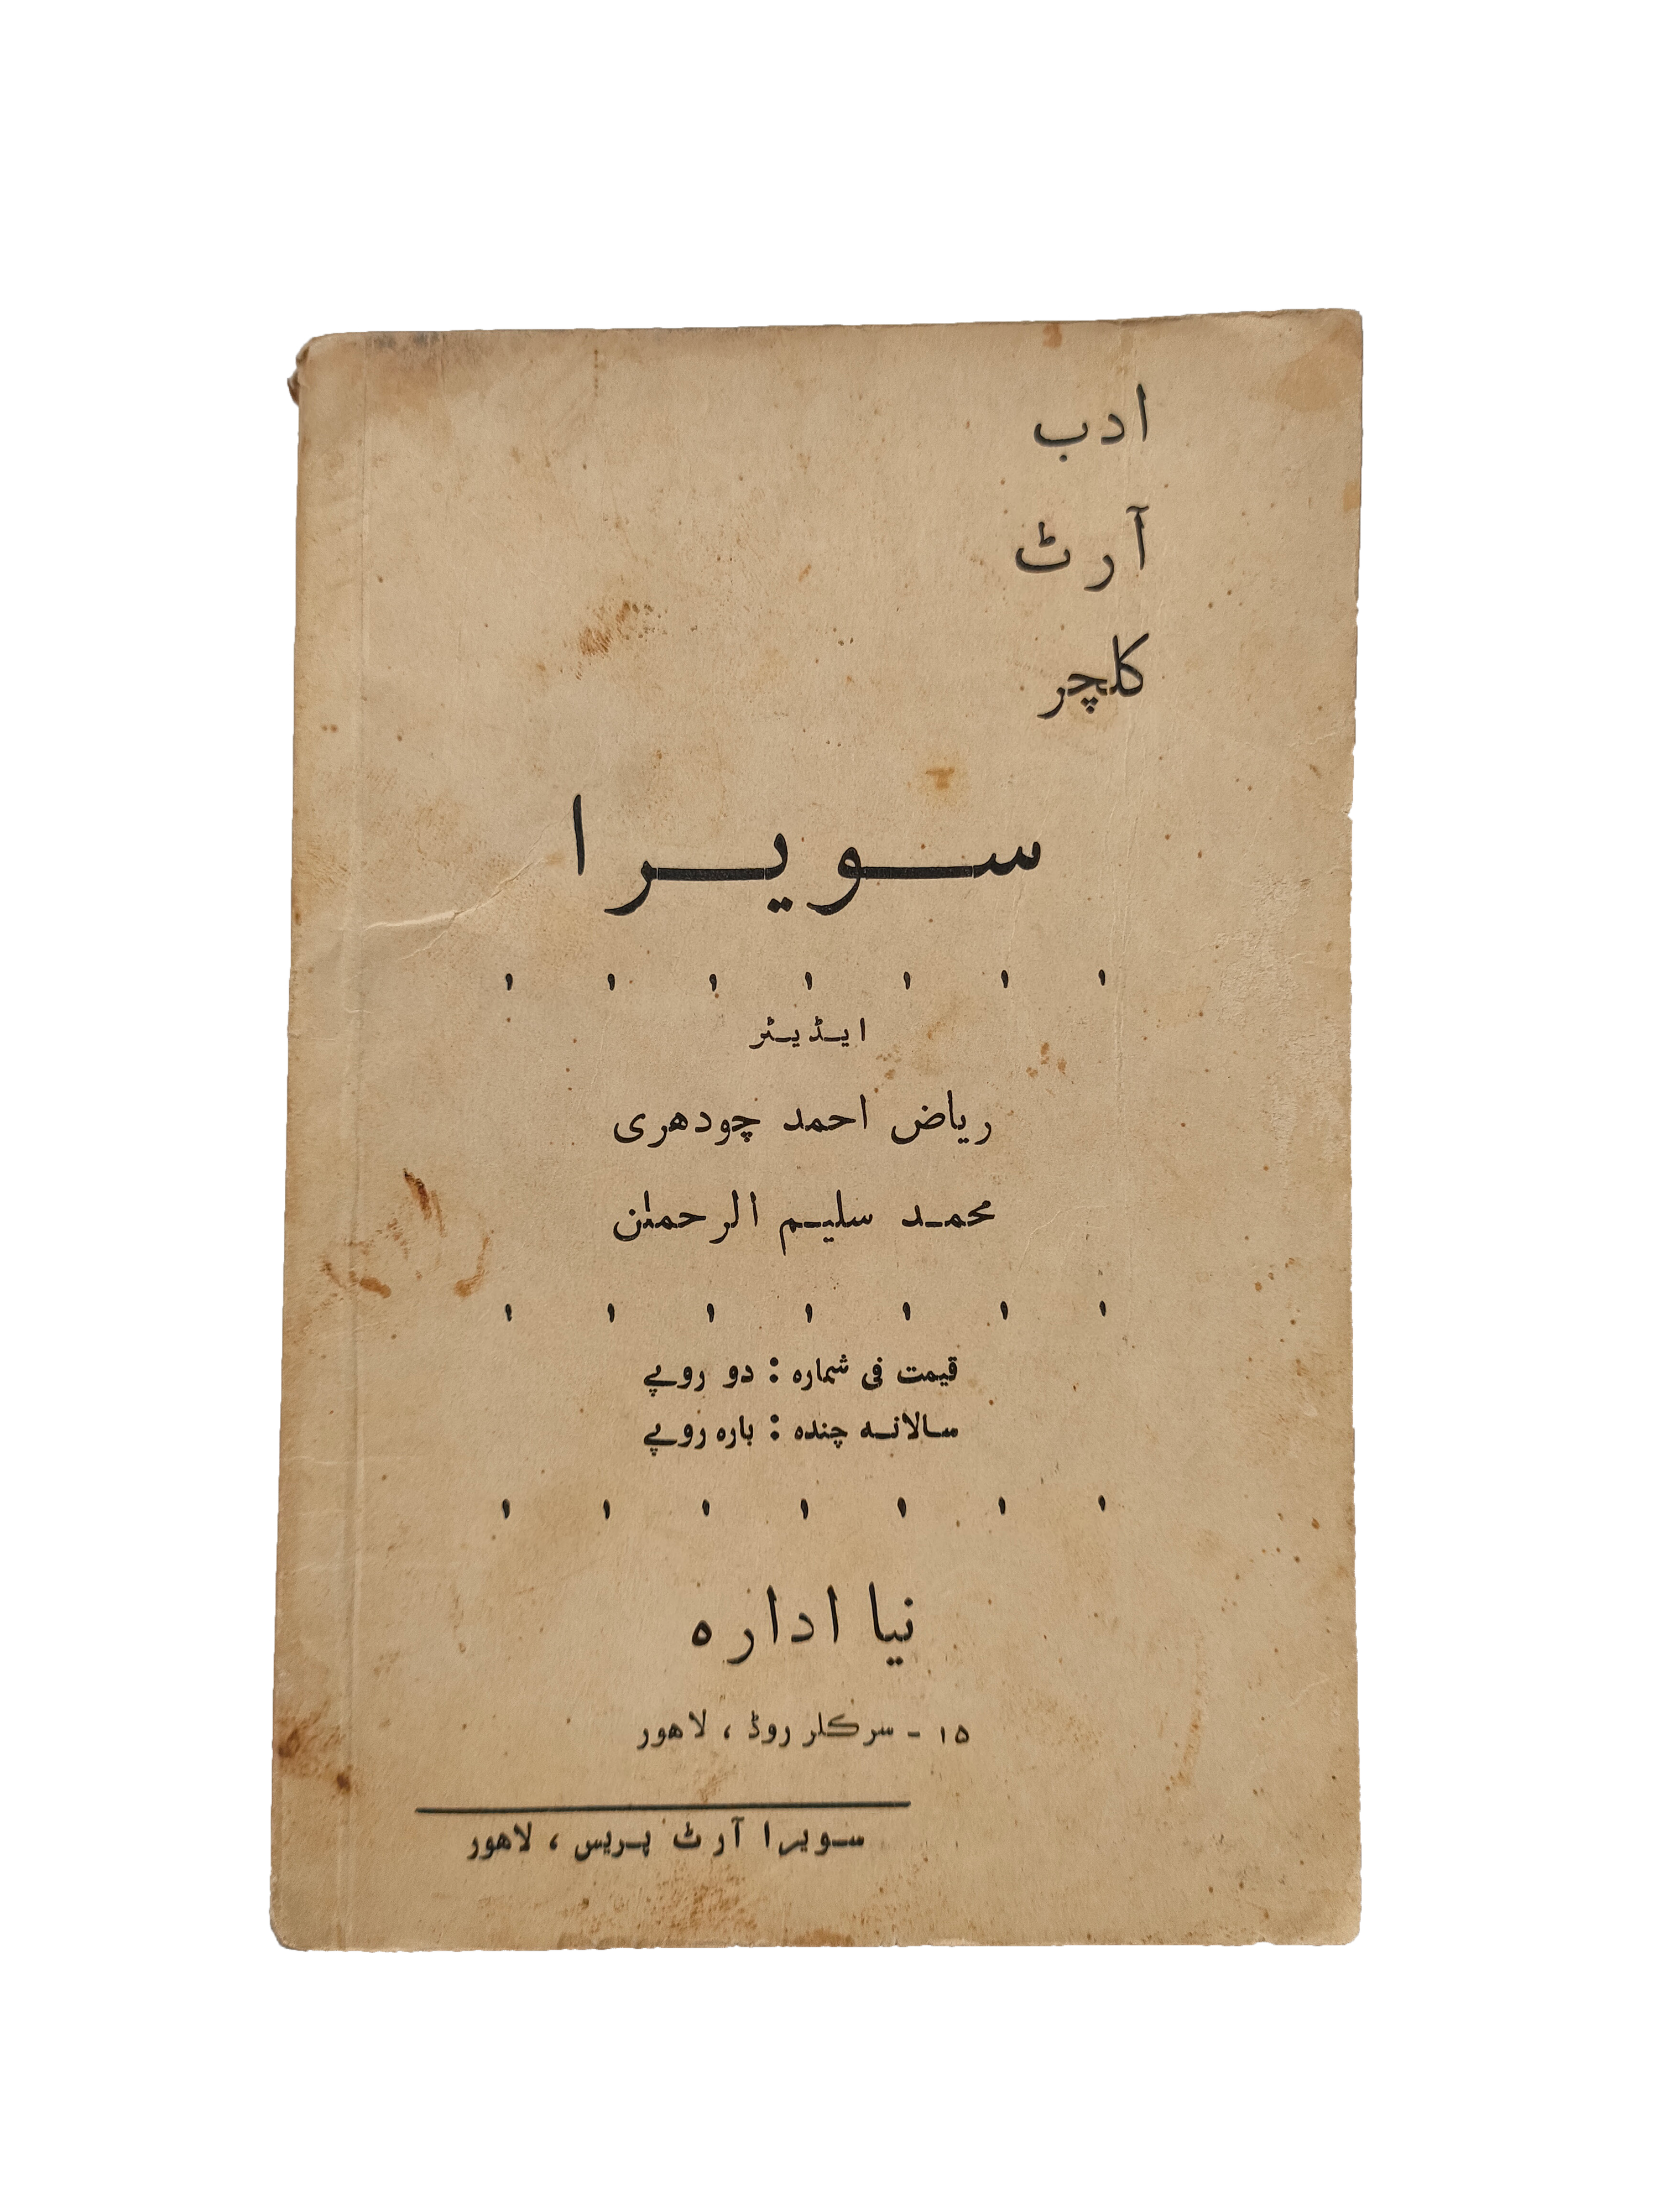 ادب
آرٹ
کلچر
سویرا
ایڈیٹر
ریاض احمد چودھری
محمد سلیم الرحمٰن
قیمت فی شمارہ : دو روپے
سالانہ چندہ : بارہ روپے
نیا ادارہ
۱۵ - سرکلر روڈ ، لاھور
سویرا آرٹ پریس ، لاھور